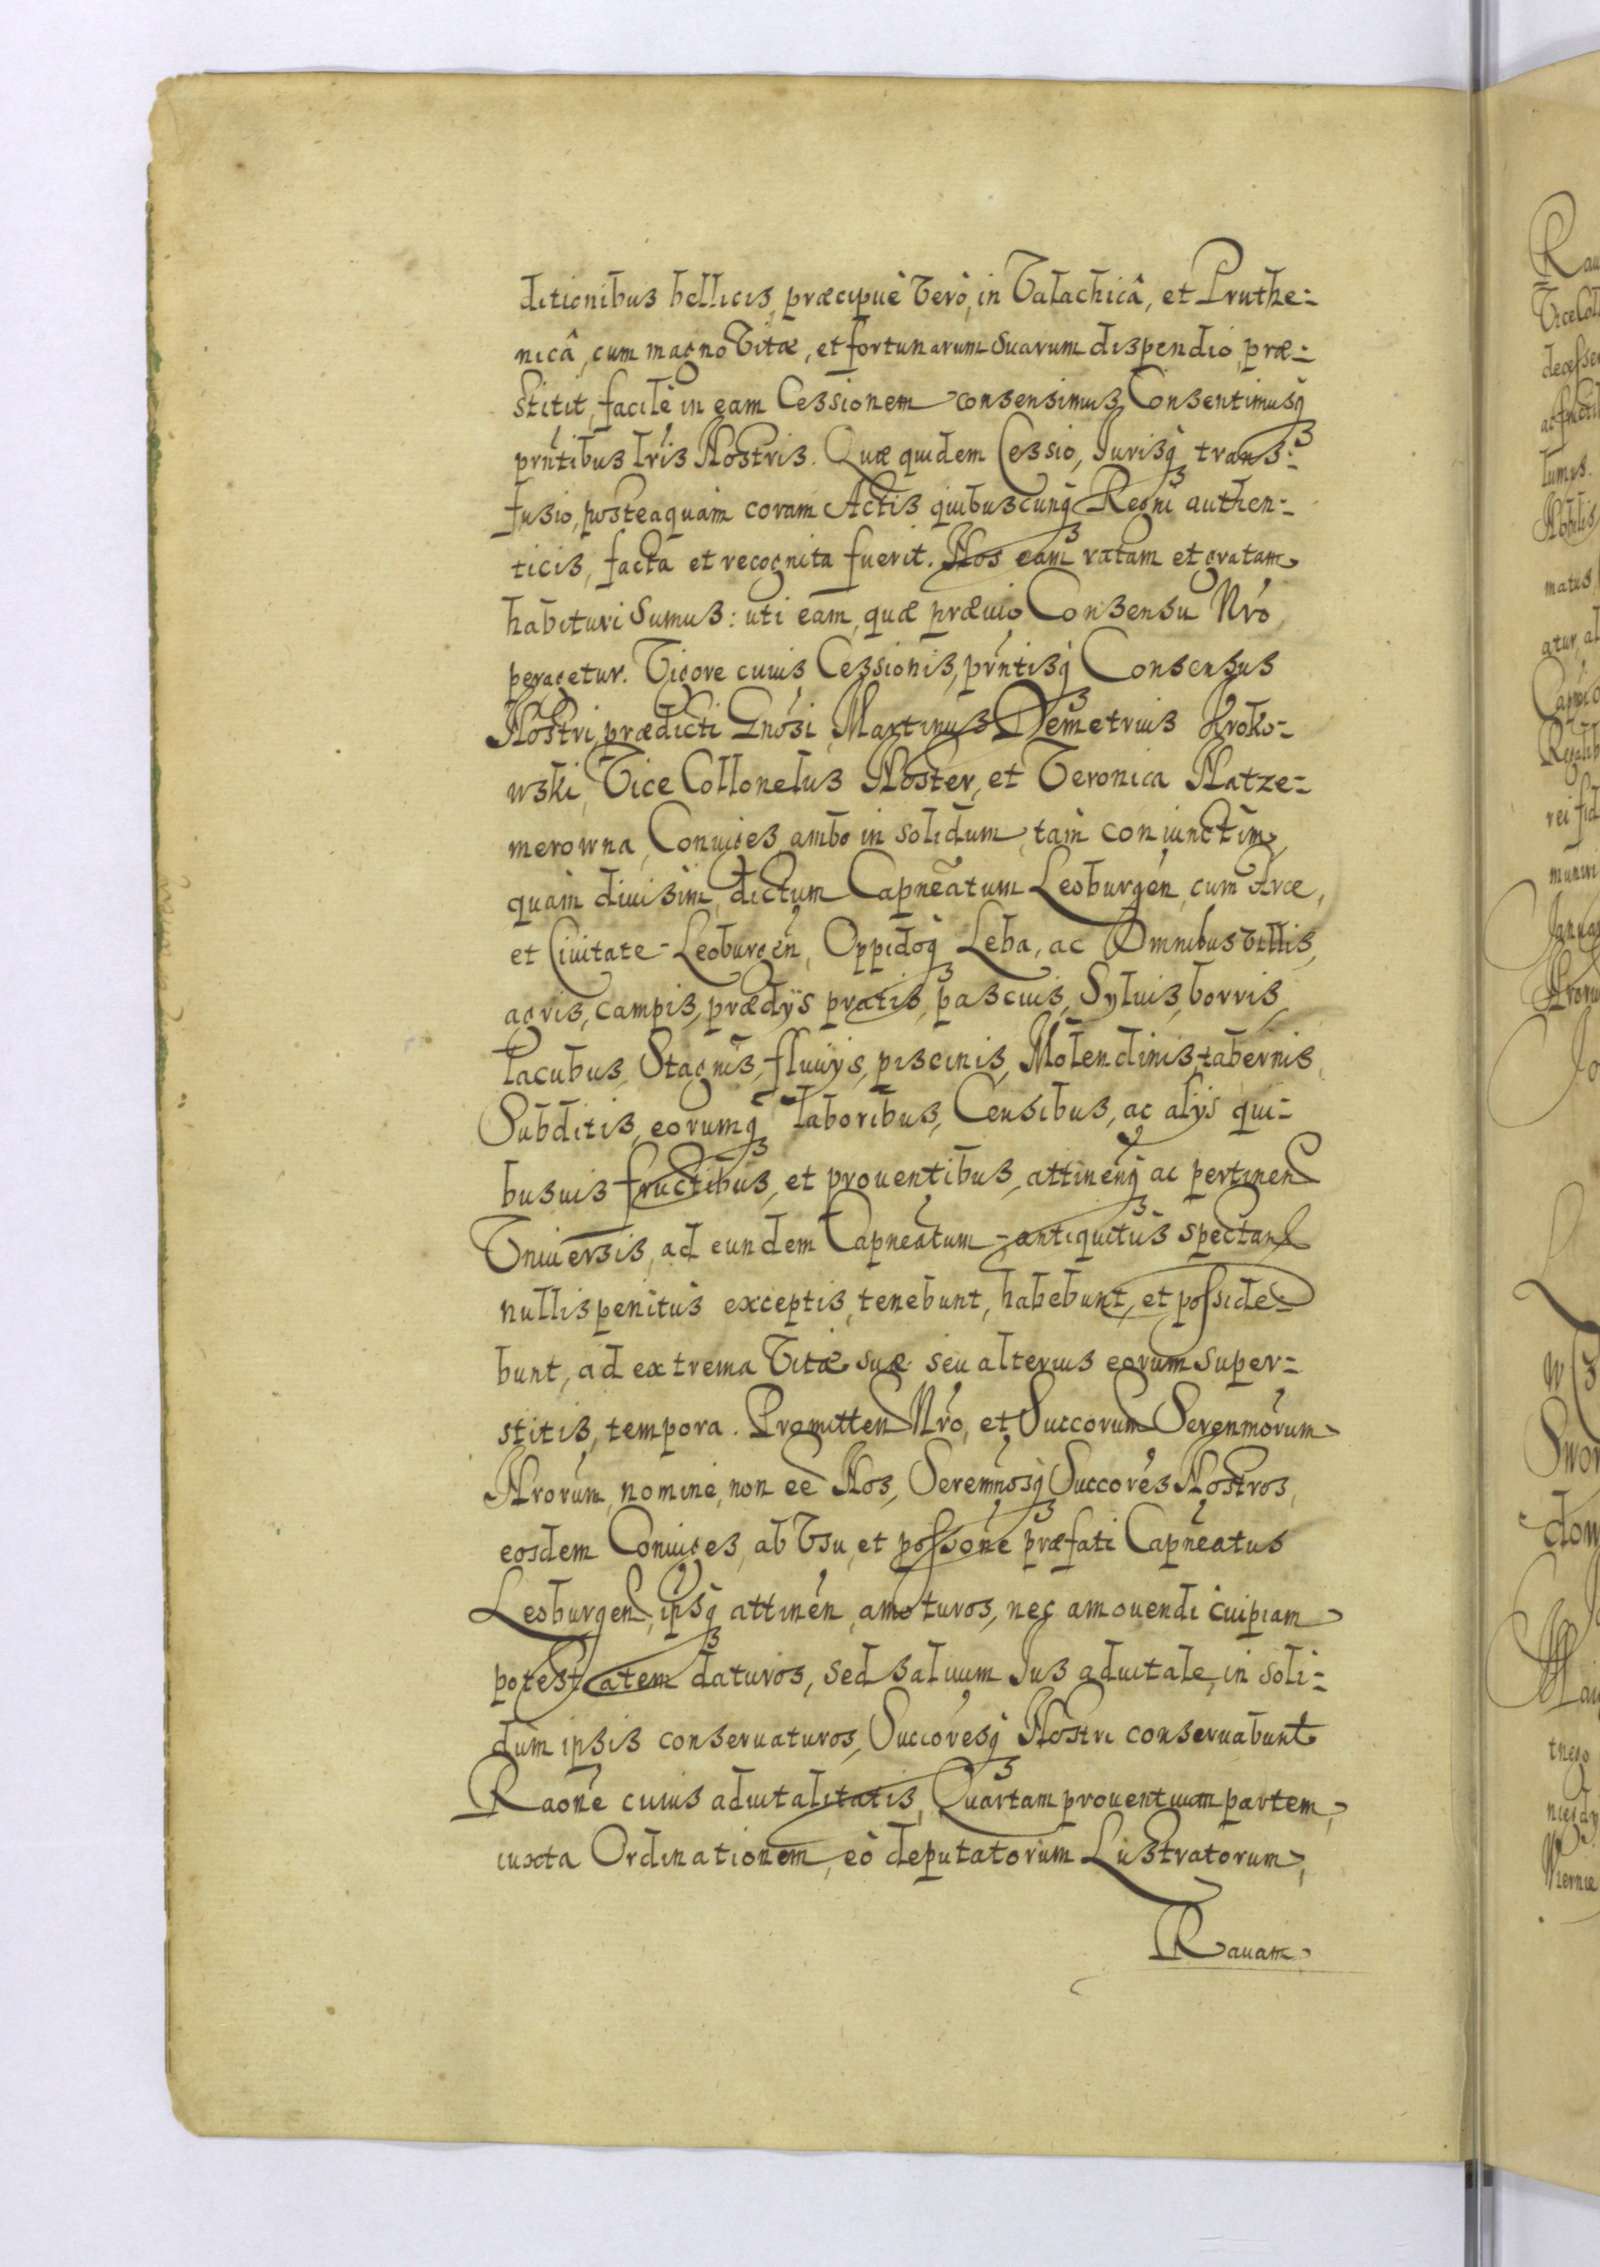 ditionibus bellicis, præcipuè Verò, in Valachicâ, et Pruthe-
nicâ, cum magno Vitæ, et fortunarum suarum dispendio, præ-
stitit, facile in eam Cessionem consensimus, Consentimusq
prn̄tibus Lr̄is Nostris. Quæ quidem Cessio, Iurisq trans-
fusio, posteaquàm coram Actis quibuscunq Regni authen-
ticis, facta et recognita fuerit. Nos eam ratam et gratam
habituri Sumus: uti eam, quæ prævio Consensu Nr̄o
peragetur. Vigore cuius Cessionis, prn̄tisq Consensus
Nostri, prædicti Gnōsi Martinus Demetrius Kroko-
wski, Vice Collonelus Noster, et Veronica Natze-
merowna, Coniuges ambo in solidum, tàm coniunctim,
quàm diuisim, dictum Capnēatum Leoburgen̄, cum Arce,
et Ciuitate Leoburgen̄, Oppidoq Leba, ac Omnibus villis,
agris, campis, prædÿs pratis, pascuis, Syluis, borris,
Lacubus, Stagnis, fluuÿs, piscinis, Molendinis, tabernis,
Subditis, eorumq laboribus, Censibus, ac alÿs qui-
busuis fructibus, et prouentibus, attinen̄q ac pertinen
Vniuersis, ad eundem Capnēatum antiquitùs spectan
nullis penitùs exceptis, tenebunt, habebunt, et posside-
bunt, ad extrema Vitæ suæ seu alterius eorum super-
stitis, tempora. Promitten Nr̄o, et Succorum Serenm̄orum
Nrorum, nomine, non eē Nos, Seremn̄osq Succorēs Nostros,
eosdem Coniuges, ab Vsu, et possōne præfati Capnēatus
Leoburgen, ipsiq attinen̄, amoturos, nec amouendi cuipiam
potestatem daturos, sed saluum Ius aduitale, in soli-
dum ipsis conseruaturos, Succorēsq Nostri conseruabunt
Raōne cuius aduitalitatis, Quartam prouentuum partem,
iuxta Ordinationem, eò deputatorum Lustratorum,
Rauam